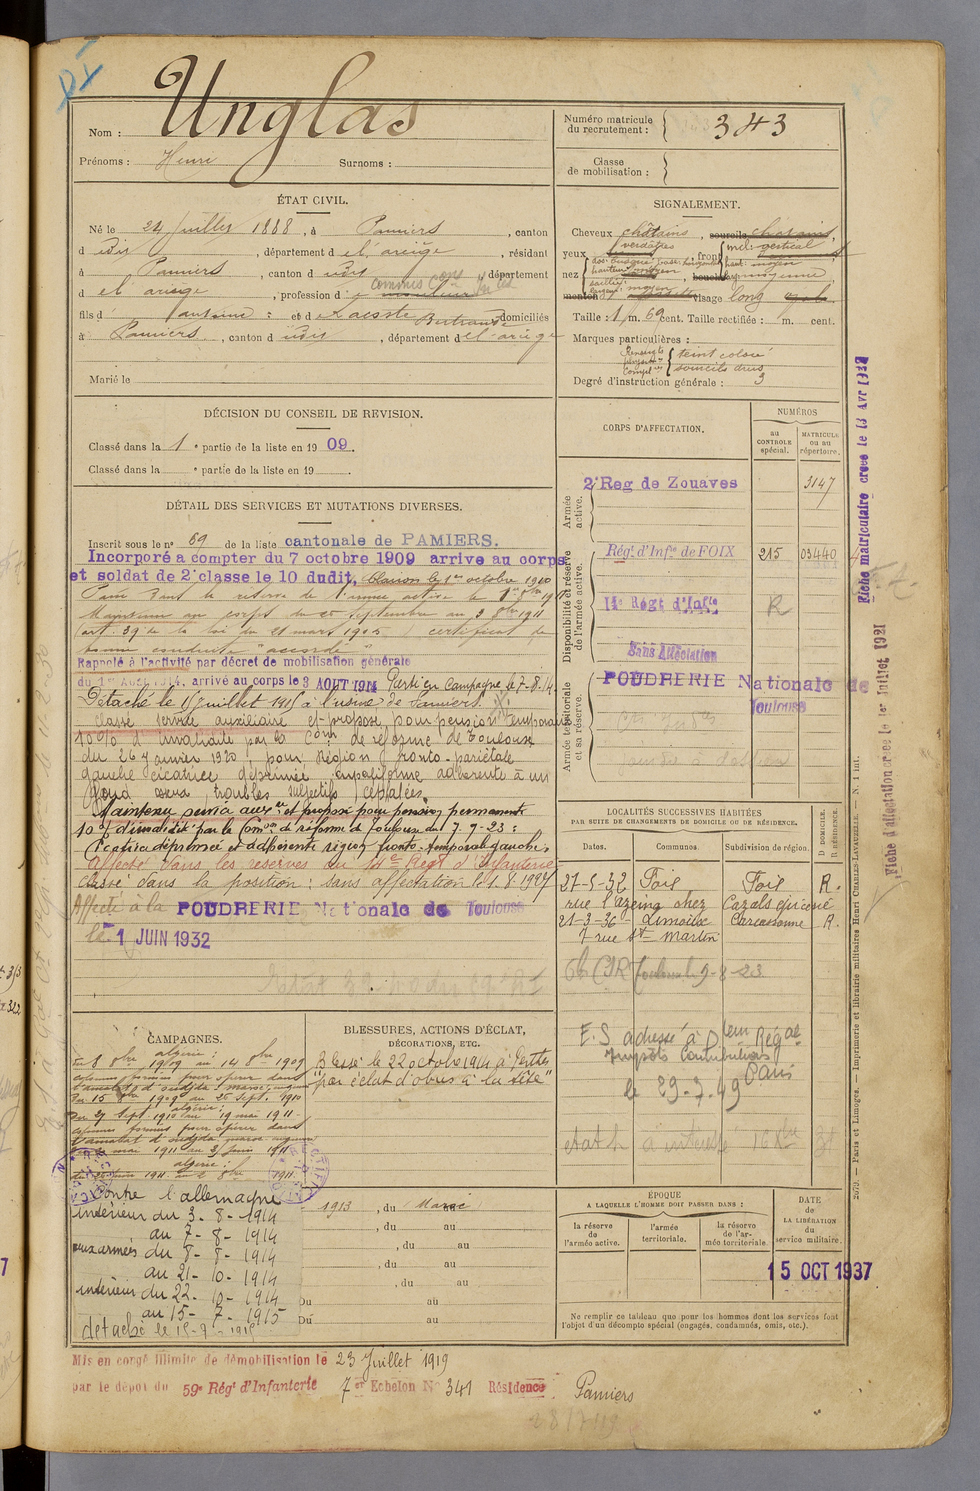 Nom : Unglas
Prénoms : Henri Surnoms :
Numéro matricule du recrutement : 343
Classe de mobilisation :
ÉTAT CIVIL.
Né le 24 Juillet 1888, à Pamiers, canton
d udit, département d el'ariège, résidant
à Pamiers, canton d udit département
d el'ariège, profession d commis
fils d antoine et d e Lacoste Bertrande domiciliés
à Pamiers, canton d udit, département d el'ariège
Marié le
SIGNALEMENT.
Cheveux châtains, sourcils châtains,
yeux verdâtres, front incl: vertical
haut: moyen
nez dos: busqué, base: horizontale
hauteur: moyen, bouche moyenne
saillie:
largeur: moyen
menton visage long
Taille : 1 m. 69 cent. Taille rectifiée : m. cent.
Marques particulières :
teint coloré
sourcils drus
Degré d'instruction générale : 3
DÉCISION DU CONSEIL DE REVISION.
Classé dans la 1e partie de la liste en 1909.
Classé dans la e partie de la liste en 19
DÉTAIL DES SERVICES ET MUTATIONS DIVERSES.
Inscrit sous le no 69 de la liste cantonale de PAMIERS.
Incorporé a compter du 7 octobre 1909 arrive au corps
et soldat de 2e classe le 10 dudit, Clairon le 1er octobre 1910
Passé dans la réserve de l'armée active le 1er 8bre 1911
Maintenu au corps du 25 septembre au 3 8bre 1911
(art. 39 de la loi du 21 mars 1905) certificat de
bonne conduite "accordé"
Rappelé à l'activité par décret de mobilisation générale
du 1er Août 1914, arrivé au corps le 3 AOUT 1914 Parti en Campagne le 7-8-14.
Détaché le 15 Juillet 1915 à l'usine de Pamiers.
Classé service auxiliaire et proposé pour pension temporaire
10% d'invalidité par la Con de réforme de Toulouse
du 26 Janvier 1920, pour Région fronto-pariétale
gauche cicatrice déprimée cupuliforme adhérente à un
fond osseux, troubles subjectifs céphalées
Maintenu service auxre et proposé pour pension permanente
10% d'invalidité par la Comon de réforme de Toulouse du 7-9-23 :
Cicatrice déprimée et adhérente région fronto-temporale gauche.
Affecté dans les réserves du 14e Regt d'Infanterie
Classé dans la position : sans affectation le 1.8.1927
Affecté à la POUDRERIE Nationale de Toulouse
le 1 JUIN 1932
CORPS D'AFFECTATION.
NUMÉROS
au CONTROLE spécial.
MATRICULE ou au répertoire.
Armée active.
2e Reg de Zouaves 3147
Disponibilité et réserve de l'armée active.
Régt d'Infie de FOIX 215 03440
14e Régt d'Infie R
Sans Affectation
Armée territoriale et sa réserve.
POUDRERIE Nationale de
Toulouse
LOCALITÉS SUCCESSIVES HABITÉES
PAR SUITE DE CHANGEMENTS DE DOMICILE OU DE RÉSIDENCE.
Dates. Communes. Subdivision de région. D DOMICILE. R RÉSIDENCE.
21-5-32 Foix Foix R.
rue Lazeina chez Cazals épicerie
21-3-36 - Limoux Carcassonne R.
7 rue St Martin
E.S adressé à Dteur Régal
Impôts Contributions
Paris
le 29.7.49
CAMPAGNES.
algérie :
du 8 8bre 1909 au 14 8bre 1909
du 15 8bre 1909 au 26 Sept. 1910
algérie :
du 27 Sept 1910 au 19 mai 1911
colonnes formées pour opérer dans
l'amalat d'oudjda maroc
algérie :
contre l'allemagne
intérieur du 3-8-1914
au 7-8-1914
aux armées du 8-8-1914
au 21-10-1914
intérieur du 22-10-1914
au 15-7-1915
détaché le 15-7-1915
BLESSURES, ACTIONS D'ÉCLAT,
DÉCORATIONS, ETC.
Blessé le 22 octobre 1914 à Perthes
"par éclat d'obus à la tête"
1913, du Maroc
, du au
, du au
, du au
, du au
Du au
Du au
ÉPOQUE
A LAQUELLE L'HOMME DOIT PASSER DANS :
la réserve de l'armée active.
l'armée territoriale.
la réserve de l'armée territoriale.
DATE de LA LIBÉRATION du service militaire.
15 OCT 1937
Ne remplir ce tableau que pour les hommes dont les services font
l'objet d'un décompte spécial (engagés, condamnés, omis, etc.).
Mis en congé illimité de démobilisation le 23 Juillet 1919
par le dépôt du 59e Régt d'Infanterie 7er Echelon No 341 Résidence Pamiers
Fiche matriculaire créée le 13 Avr 1932
Fiche d'affectation créée le 1er Juillet 1921
2079. — Paris et Limoges. — Imprimerie et librairie militaires Henri CHARLES-LAVAUZELLE. — N. 1 int.